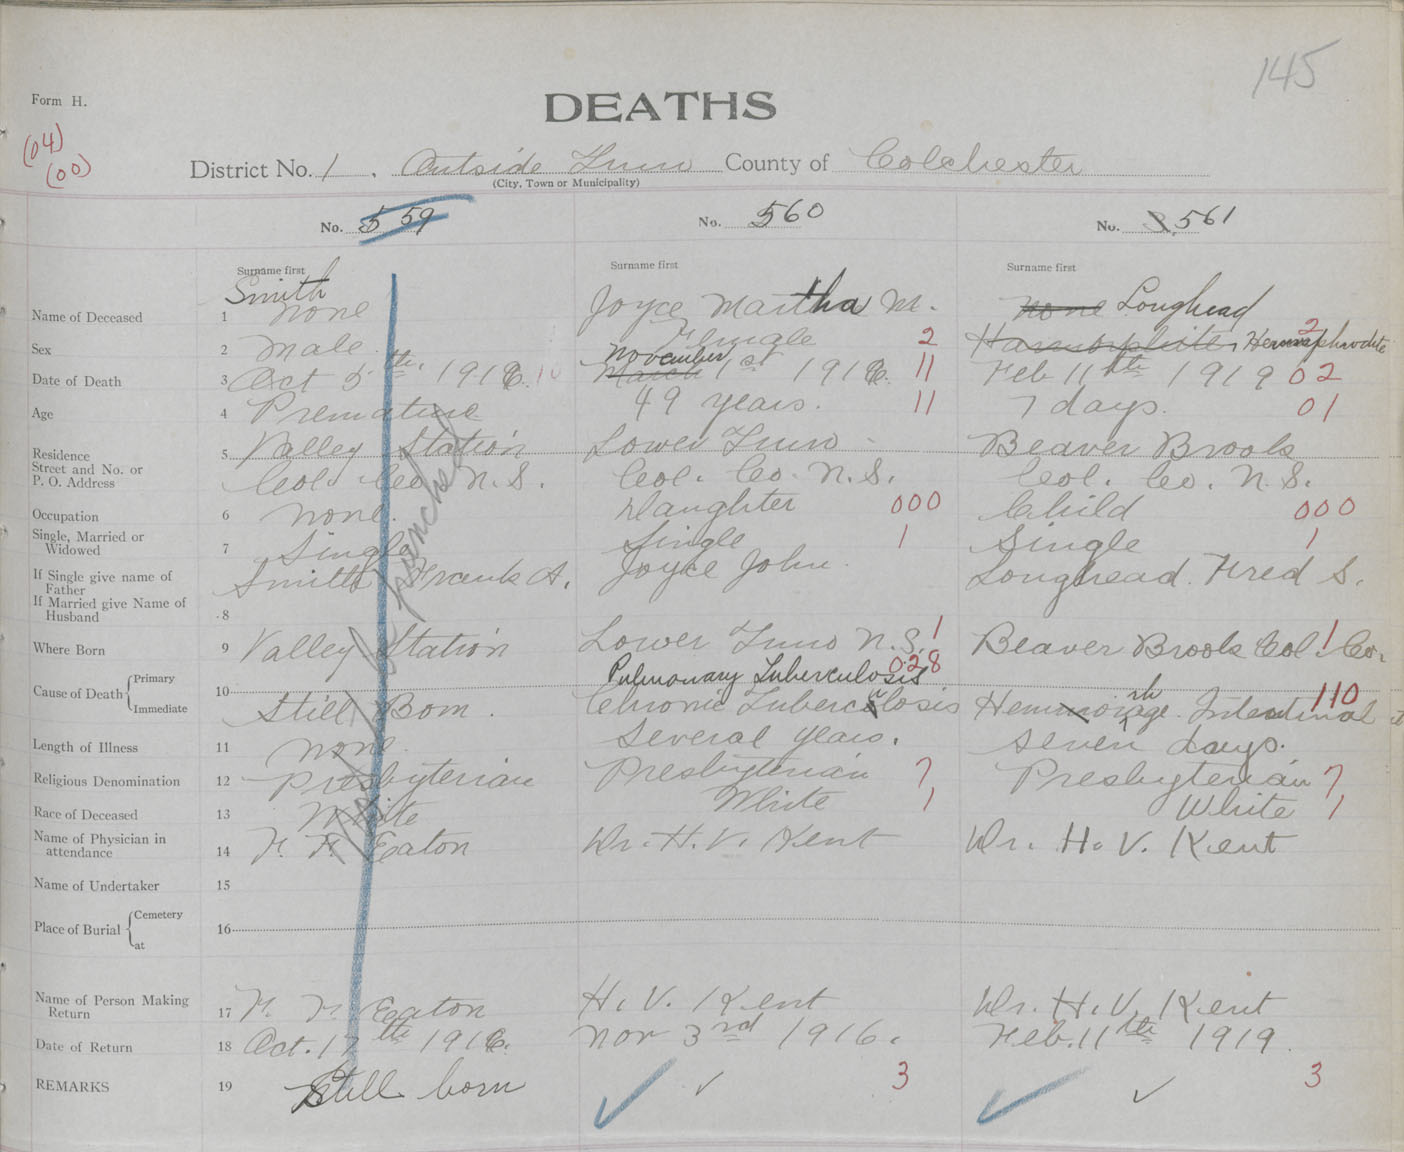 145
Form H.
DEATHS
(04)
(00)
District No. 1, Outside Truro County of Colchester
(City, Town or Municipality)
No. 559 No. 560 No. 561
Surname first Surname first Surname first
Smith
Name of Deceased 1 None Joyce Martha M. None Longhead
Sex 2 Male Female 2 Hermaphrodite 2
November
Date of Death 3 Oct 5th. 1916. 10 March 1st 1916. 11 Feb 11th 1919 02
Age 4 Premature 49 years. 11 7 days. 01
Residence 5 Valley Station Lower Truro Beaver Brook
Street and No. or
P. O. Address Col. Co. N.S. Col. Co. N.S. Col. Co. N.S.
Occupation 6 None. Daughter 000 Child 000
Single, Married or
Widowed 7 Single Single 1 Single 1
If Single give name of
Father Smith Frank A. Joyce John Longhead. Fred S.
If Married give Name of
Husband 8
Where Born 9 Valley Station Lower Truro N.S. 1 Beaver Brook Col. Co. 1
Cause of Death Primary 10 Pulmonary Tuberculosis 028 110
Immediate Still Born. Chronic Tuberculosis Hemorrhage Intestinal
Length of Illness 11 None. Several years. Seven days.
Religious Denomination 12 Presbyterian Presbyterian 7 Presbyterian 7
Race of Deceased 13 White White 1 White 1
Name of Physician in
attendance 14 F. F. Eaton Dr. H. V. Kent Dr. H. V. Kent
Name of Undertaker 15
Place of Burial Cemetery 16
at
Name of Person Making
Return 17 F. F. Eaton H. V. Kent Dr. H. V. Kent
Date of Return 18 Oct. 17th 1916. Nov 3rd 1916. Feb. 11th 1919.
REMARKS 19 Still born ✓ ✓ 3 ✓ ✓ 3